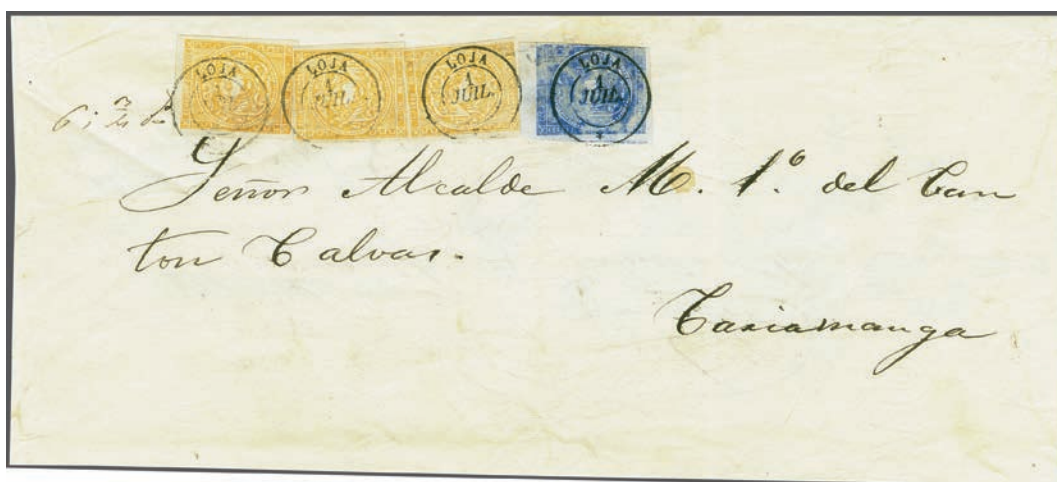 LOJA
1
JUIL.
LOJA
1
JUIL.
LOJA
1
JUIL.
LOJA
1
JUIL.
Señor Alcalde M. 1.º del Can
ton Calvas.
Cariamanga